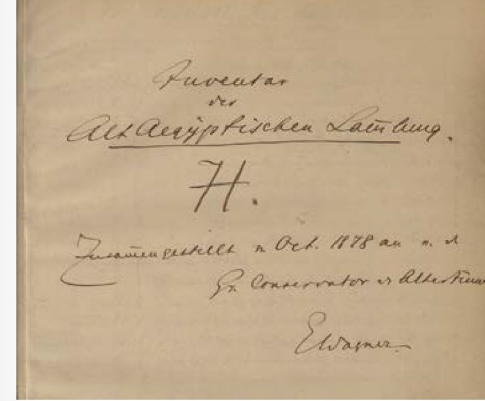 Inventar
der
AltAegyptischen Sam̅lung.
H.
Zusam̅engestellt Oct. 1878
Conservator d Altertüm
EWagner